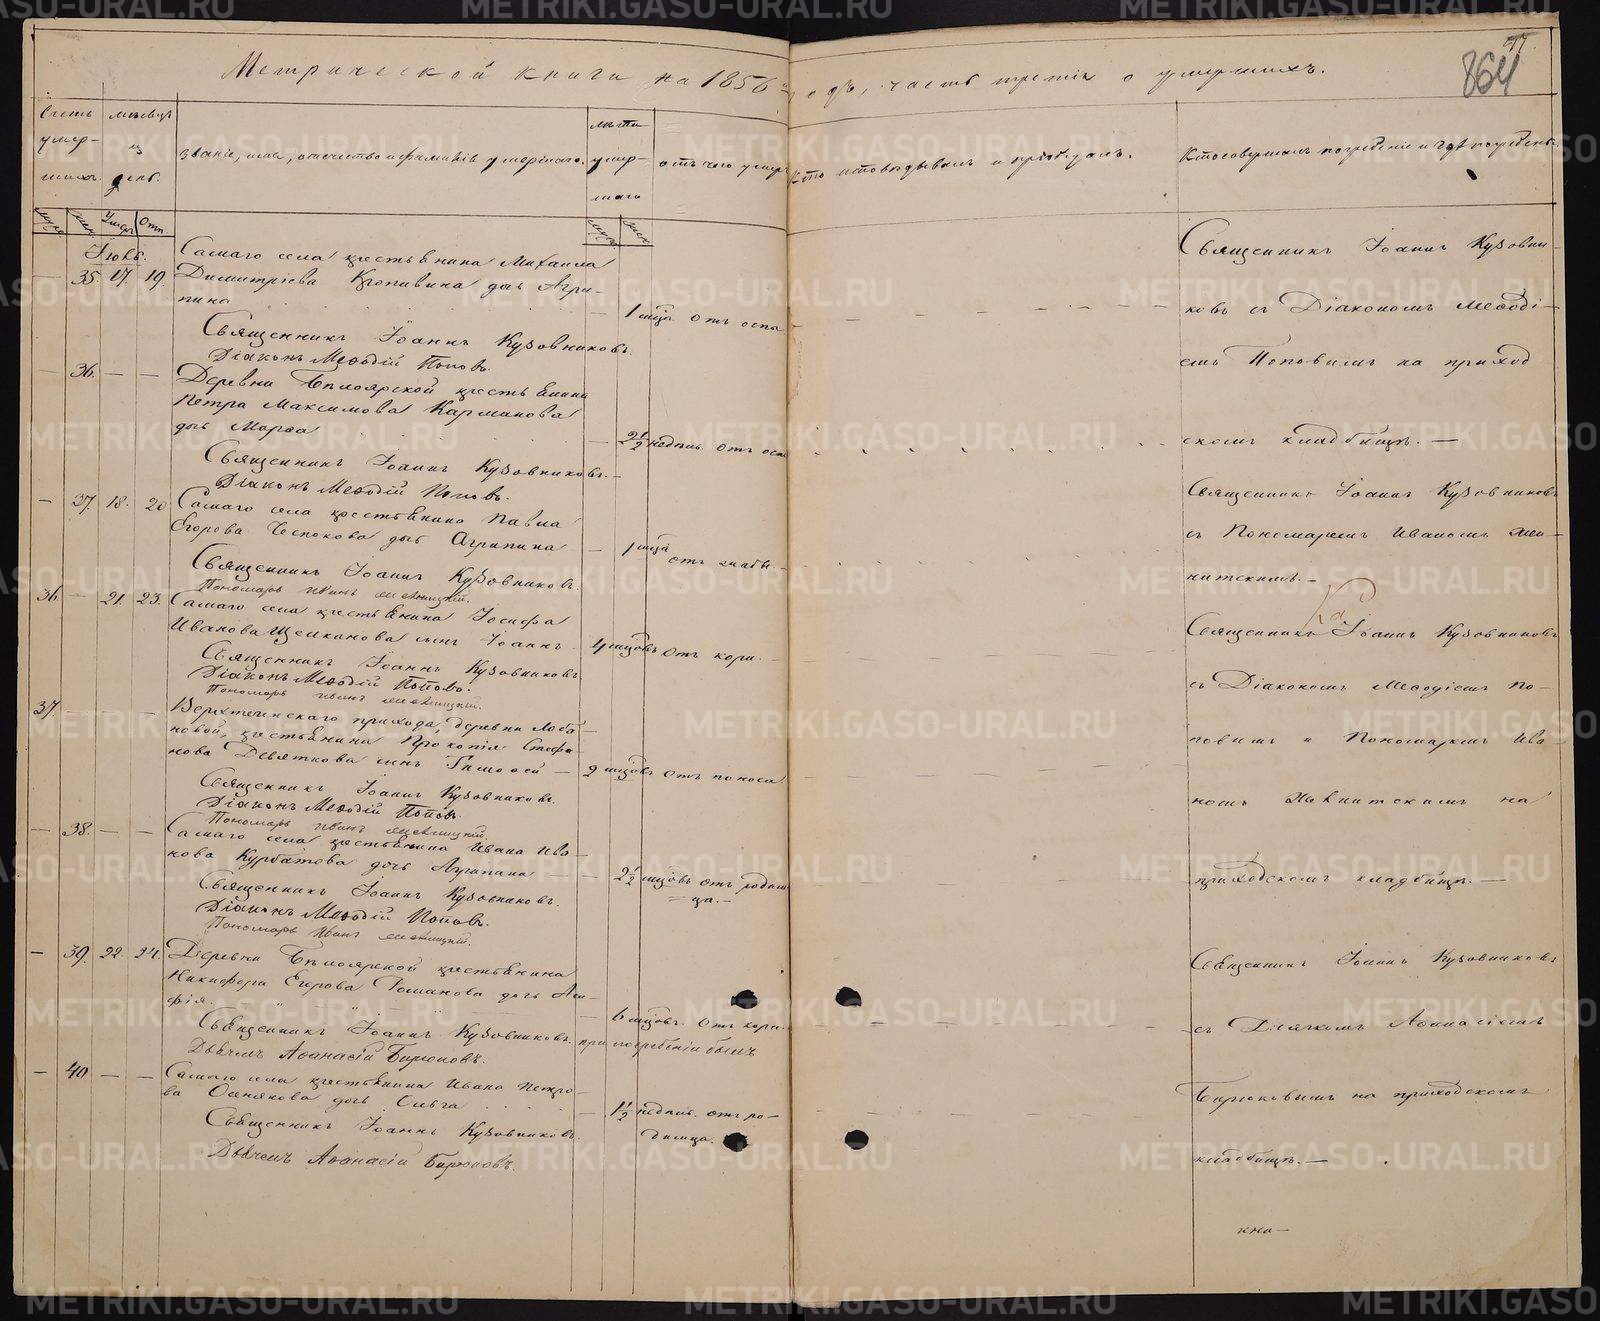 Метрической книги на 1856 годъ, часть третія о умершихъ.
864
Счетъ умер-шихъ.
мѣсяцъ и день.
званіе, имя, отечество и фамилія умершаго.
лѣта умер-шаго
отъ чего умеръ
кто исповѣдывалъ и пріобщалъ.
Кто совершалъ погребеніе и гдѣ погребены.
Умер. Отп.
Іюль.
35. 17. 19.
Самаго села крестьянина Михаила
Димитріева Кропивина дочь Агри-
пина
1 мѣсц. отъ оспы
Священникъ Іоаннъ Кузовниковъ.
Діаконъ Меѳодій Поповъ.
36. — —
Деревни Бѣлоярской крестьянина
Петра Максимова Карманова
дочь Марѳа
2½ недѣль отъ оспы
Священникъ Іоаннъ Кузовниковъ.
Діаконъ Меѳодій Поповъ.
37. 18. 20
Самаго села крестьянина Павла
Егорова дочь Агрипина
1 мѣсц.
отъ слабы.
Священникъ Іоаннъ Кузовниковъ
Пономарь Иванъ
36 — 21. 23.
Самаго села крестьянина Іосифа
Иванова Щелканова сынъ Іоаннъ
4 мѣсцовъ отъ кори.
Священникъ Іоаннъ Кузовниковъ
Діаконъ Меѳодій Поповъ.
Пономарь Иванъ
37.
Верхтеченскаго прихода, деревни Лоба-
новой, крестьянина Прокопія Стефа-
нова Девяткова сынъ Тимоѳей
9 мѣсцовъ отъ поноса
Священникъ Іоаннъ Кузовниковъ.
Діаконъ Меѳодій Поповъ.
Пономарь Иванъ
— 38. — —
Самаго села крестьянина Ивана Ива-
нова Курбатова дочь Агрипина
2½ мѣсцовъ отъ родим-
ца.
Священникъ Іоаннъ Кузовниковъ.
Діаконъ Меѳодій Поповъ.
Пономарь Иванъ
— 39. 22. 24.
Деревни Бѣлоярской крестьянина
Никифора Егорова Романова дочь
6 мѣсцовъ. отъ кори.
Священникъ Іоаннъ Кузовниковъ. при погребеніи былъ
Дьячекъ Аѳанасій Бирюковъ.
— 40 — —
Самаго села крестьянина Ивана Петро-
ва дочь Ольга
1½ недѣль. отъ ро-
димца.
Священникъ Іоаннъ Кузовниковъ.
Дьячекъ Аѳанасій Бирюковъ.
Священникъ Іоаннъ Кузовни-
ковъ съ Діакономъ Меѳоді-
емъ Поповымъ на приход
скомъ кладбищѣ. —
Священникъ Іоаннъ Кузовниковъ
съ Пономаремъ Иваномъ
Священникъ Іоаннъ Кузовниковъ
съ Діакономъ Меѳодіемъ По-
повымъ и Пономаремъ Ива-
номъ на
приходскомъ кладбищѣ. —
Священникъ Іоаннъ Кузовниковъ
съ Дьячкомъ Аѳанасіемъ
Бирюковымъ на приходскомъ
кладбищѣ. —
кни—
METRIKI.GASO-URAL.RU